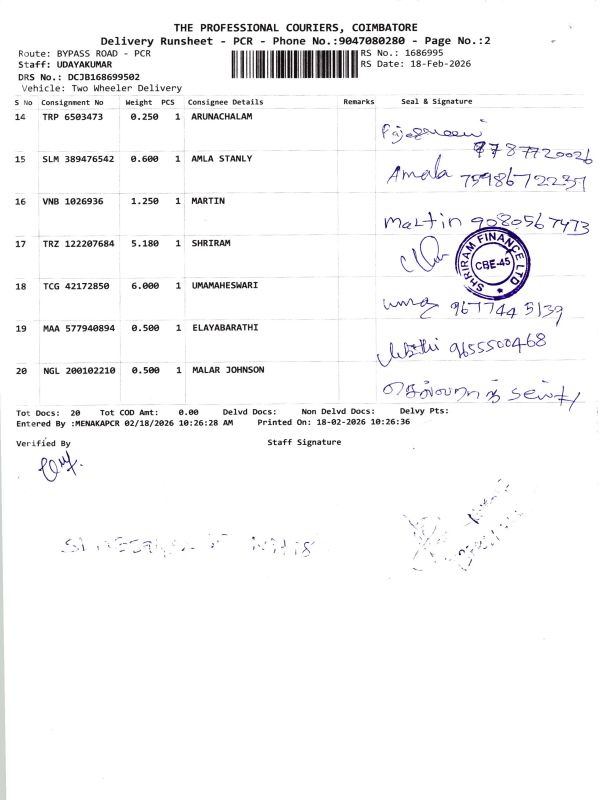 THE PROFESSIONAL COURIERS, COIMBATORE
Delivery Runsheet - PCR - Phone No.:9047080280 - Page No.:2
Route: BYPASS ROAD - PCR RS No.: 1686995
Staff: UDAYAKUMAR RS Date: 18-Feb-2026
DRS No.: DCJB168699502
Vehicle: Two Wheeler Delivery
S No Consignment No Weight PCS Consignee Details Remarks Seal & Signature
14 TRP 6503473 0.250 1 ARUNACHALAM
8787720026
15 SLM 389476542 0.600 1 AMLA STANLY
Amala 7598672237
16 VNB 1026936 1.250 1 MARTIN
Martin 9080567473
17 TRZ 122207684 5.180 1 SHRIRAM
SHRIRAM FINANCE LTD
CBE-45
18 TCG 42172850 6.000 1 UMAMAHESWARI
uma 9677445139
19 MAA 577940894 0.500 1 ELAYABARATHI
9655500468
20 NGL 200102210 0.500 1 MALAR JOHNSON
Tot Docs: 20 Tot COD Amt: 0.00 Delvd Docs: Non Delvd Docs: Delvy Pts:
Entered By :MENAKAPCR 02/18/2026 10:26:28 AM Printed On: 18-02-2026 10:26:36
Verified By Staff Signature